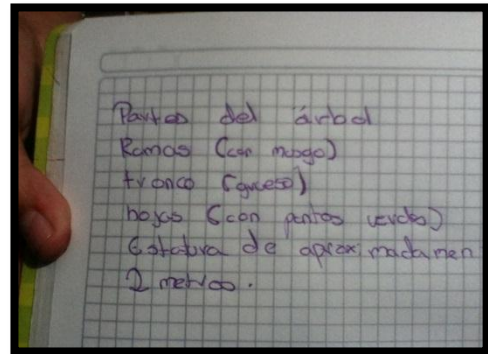 Partes del árbol
Ramas (con musgo)
tronco (grueso)
hojas (con puntos verdes)
Estatura de aproximadamen
2 metros.